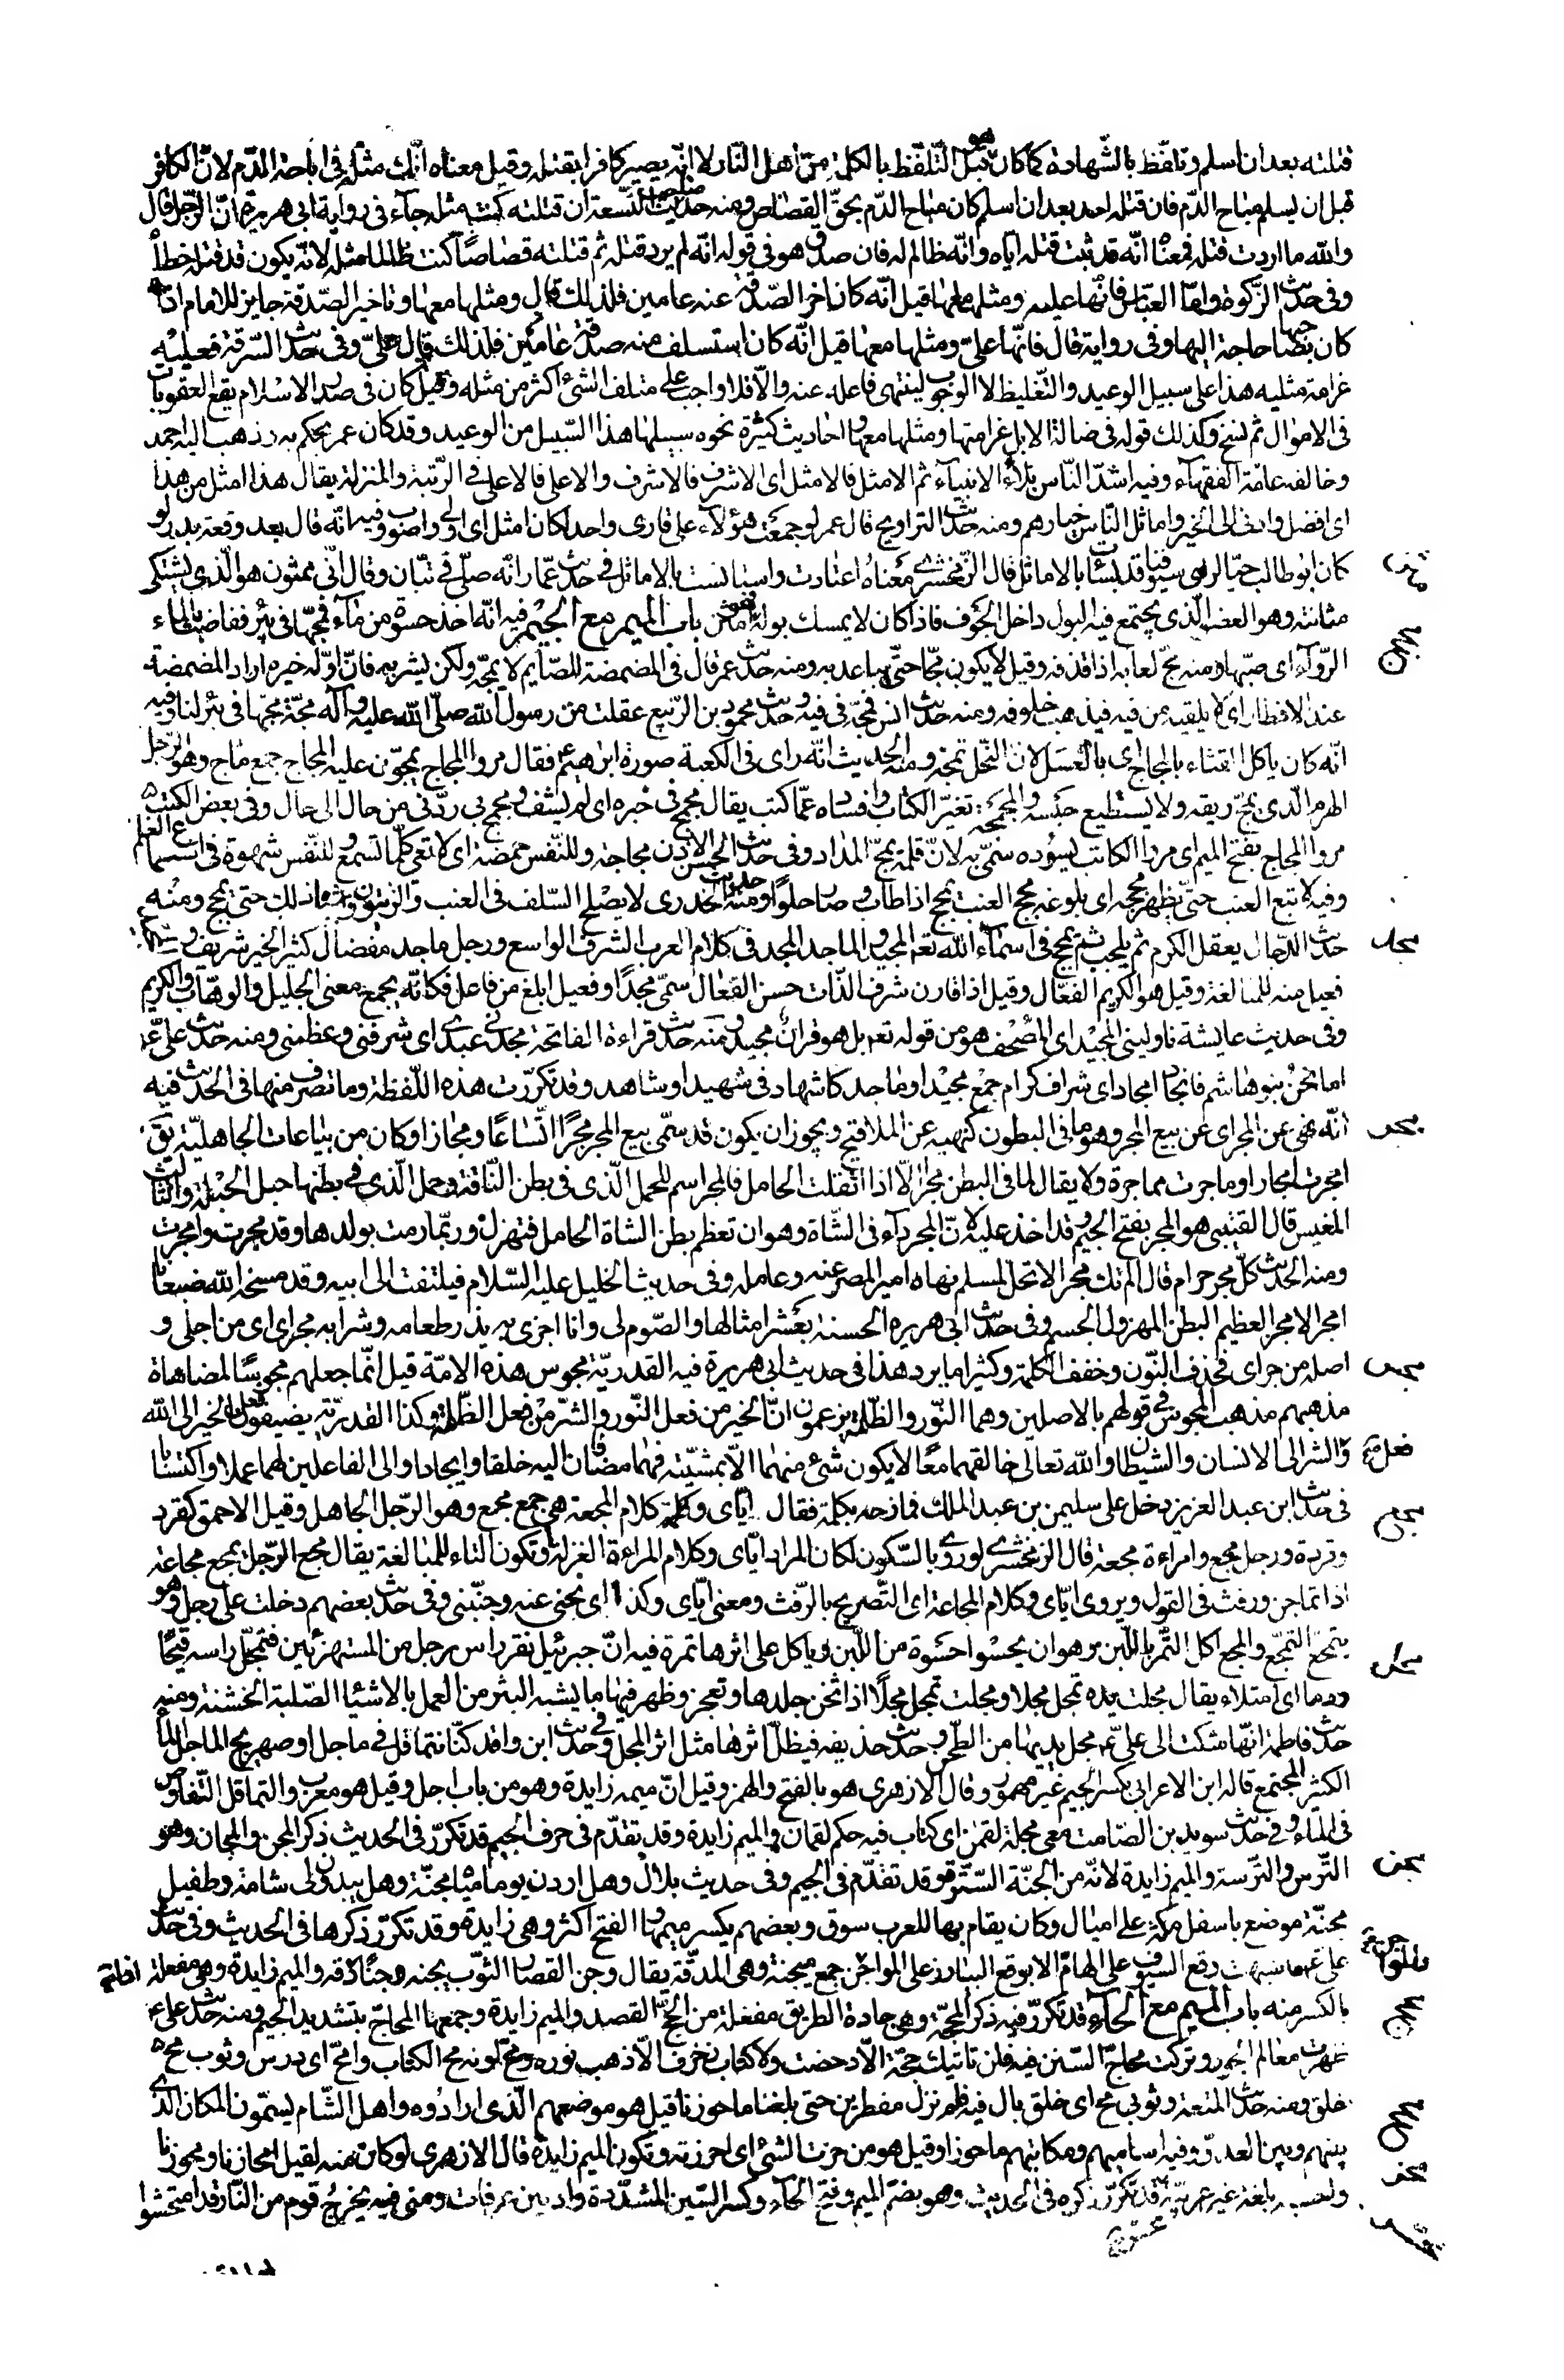 قتلته بعد ان اسلم وتلفّظ بالشّهادة كما كان هو قبل التّلفّظ بالكلمة من اهل النّار لا انّه يصير كافرا بقتله وقيل معناه انّك مثله فى اباحة الدّم لانّ الكافر
قبل ان يسلم مباح الدّم فان قتله احد بعد ان اسلم كان مباح الدّم بحقّ القصاص ومنه حديث صاحب النّسعة ان قتلته كنت مثله جآء فى رواية ابى هريرة انّ الرّجل قال
والله ما اردت قتله فمعناه انّه قد ثبت قتله ايّاه وانّه ظالم له فان صدق هو فى قوله انّه لم يرد قتله ثم قتلته قصاصًا كنت ظالما مثله لانّه يكون قد قتله خطأ
وفى حديث الزّكوة وامّا العبّاس فانّها عليه ومثلها معها قيل انّه كان اخّر الصّدقة عنه عامين فلذلك قال ومثلها معها وتاخير الصّدقة جايز للامام اذا
كان بصاحبها حاجة اليها وفى رواية قال فانّها علىّ ومثلها معها قيل انّه كان استسلف منه صدقة عامين فلذلك قال علىّ وفى حديث السّرقة فعليه
غرامة مثليه هذا على سبيل الوعيد والتّغليظ لا الوجوب لينتهى فاعله عنه والّا فلا واجب على متلف الشئ اكثر من مثله وقيل كان فى صدر الاسلام يقع العقوبات
فى الاموال ثم نسخ وكذلك قوله فى ضالة الابل غرامتها ومثلها معها احاديث كثيرة نحوه سبيلها هذا السّبيل من الوعيد وقد كان عمر يحكم به وذهب اليه احمد
وخالفه عامّة الفقهآء وفيه اشدّ النّاس بلاء الانبيآء ثم الامثل فالامثل اى الاشرف فالاشرف والاعلى فالاعلى فى الرّتبة والمنزلة يقال هذا امثل من هذا
اى افضل وادنى الى الخير واماثل النّاس خيارهم ومنه حديث التراويح قال عمر لو جمعت هؤلآء على قارى واحد لكان امثل اى اولى واصوب وفيه انّه قال بعد وقعة بدر لو
كان ابو طالب حيّا لراى سيوفنا قد بسئت بالاماثل قال الزّمخشرى معناه اعتادت واستانست بالاماثل فى حديث عمّار انّه صلّى فى تبّان وقال انّى ممثون هو الّذى يشتكى
مثن
مثانته وهو العضو الّذى يجتمع فيه البول داخل الجوف فاذا كان لا يمسك بوله فهو امثن باب الميم مع الجيم فيه انّه اخذ حسوة من مآء فمجّها فى بئر ففاضت بالمآء
مجج
الرّوآء اى صبّها ومنه مجّ لعابه اذا قذفه وقيل لا يكون مجّا حتّى يباعد به ومنه حديث عمر قال فى المضمضة للصّايم لا يمجّه ولكن ليشربه فانّ اوّله خيره اراد المضمضة
عند الافطار اى لا يلقيه من فيه فيذهب خلوفه ومنه حديث انس فمجّه فى فيه وحديث محمود بن الرّبيع عقلت من رسول الله صلّى الله عليه وآله مجّة مجّها فى بئر لنا وفيه
انّه كان ياكل القثاء بالمجاج اى بالعسل لانّ النّحل تمجّه ومنه الحديث انّه راى فى الكعبة صورة ابرهيم فقال مروا المجاج يمجمجون عليه المجاج جمع ماج وهو الرّجل
الهرم الّذى يمجّ ريقه ولا يستطيع حبسه والمجمجة تغيّر الكتاب وافساده عمّا كتب يقال مجمج فى خبره اى لم يشف ومجمج بى ردّنى من حال الى حال وفى بعض الكتب
مروا المجاج بفتح الميم اى مروا الكاتب يسوّده سمّى به لانّ قلمه يمجّ المداد وفى حديث الحسن الاذن مجاجة وللنّفس حمضة اى لا تعى كلّما تسمع وللنّفس شهوة فى استماع العلم
وفيه لا تبع العنب حتّى يظهر مججه اى بلوغه مجج العنب يمجج اذا طاب وصار حلوًا ومنه حديث الخدرى لا يصلح السّلف فى العنب والزّيتون واشباه ذلك حتى يمجج ومنه
حديث الدّجال يعقل الكرم ثم يكحب ثم يمجج فى اسمآء الله تعه المجيد والماجد المجد فى كلام العرب الشرف الواسع ورجل ماجد مفضال كثير الخير شريف
مجد
فعيل منه للمبالغة وقيل هو الكريم الفعّال وقيل اذا قارن شرف الذّات حسن الفعال سمّى مجدًا وفعيل ابلغ من فاعل فكانّه يجمع معنى الجليل والوهّاب والكريم
وفى حديث عايشة ناولينى المجيد اى المصحف هو من قوله تعه بل هو قران مجيد ومنه حديث قراءة الفاتحة مجّدنى عبدى اى شرفنى وعظمنى ومنه حديث علىّ
اما نحن بنو هاشم فانجاد امجاد اى شراف كرام جمع مجيد او ماجد كاشهاد فى شهيد او شاهد وقد تكرّرت هذه اللّفظة وما تصرف منها فى الحديث فيه
انّه نهى عن المجر اى عن بيع المجر وهو ما فى البطون كنهيه عن الملاقيح ويجوز ان يكون قد سمّى بيع المجر مجرًا اتّساعًا ومجازا وكان من بياعات الجاهليّة يق
مجر
امجرت امجارا وماجرت مماجرة ولا يقال لما فى البطن مجر الّا اذا اثقلت الحامل فالمجر اسم للحمل الّذى فى بطن النّاقة وحمل الّذى فى بطنها حبل الحبلة والثّالث
الغميس قال القتيبى هو المجر بفتح الجيم وقد اخذ عليه لانّ المجر دآء فى الشّاة وهو ان تعظم بطن الشاة الحامل فتهزل وربّما رمت بولدها وقد مجرت وامجرت
ومنه الحديث كلّ مجر حرام قال الم تك مجرا لا تحل لمسلم نهاه امير المصر عنه وعامله وفى حديث الخليل عليه السّلام فيلتفت الى ابيه وقد مسخه الله ضبعانا
امجر الامجر العظيم البطن المهزول الجسم وفى حديث ابى هريره الحسنة بعشر امثالها والصّوم لى وانا اجزى به يذر طعامه وشرابه مجراى اى من اجلى و
اصله من جراى فحذف النّون وخفف الكلمة وكثيرا ما يرد هذا فى حديث ابى هريرة فيه القدريّة مجوس هذه الامّة قيل انّما جعلهم مجوسًا لمضاهاة
مجس
مذهبهم مذهب المجوس فى قولهم بالاصلين وهما النّور والظّلمة يزعمون انّ الخير من فعل النّور والشّر من فعل الظّلمة وكذا القدريّة يضيفون الخير الى الله
والشر الى الانسان والشيطان والله تعالى خالقهما معًا لا يكون شئ منهما الّا بمشيّته فهما مضافان اليه خلقا وايجادا والى الفاعلين لهما عملا واكتسابا
فى حديث ابن عبد العزيز دخل على سليمن بن عبد الملك فمازحه بكلمة فقال ايّاى وكلام المجعة هى جمع مجع وهو الرّجل الجاهل وقيل الاحمق كقرد
مجع
وقردة ورجل مجع وامراءة مجعة قال الزمخشرى لو روى بالسّكون لكان المراد ايّاى وكلام المراءة الغزلة او تكون التاء للمبالغة يقال مجع الرّجل يمجع مجاعة
اذا تماجن ورفث فى القول ويروى ايّاى وكلام المجاعة اى التّصريح بالرّفث ومعنى ايّاى وكذا اى نحّنى عنه وجنّبنى وفى حديث بعضهم دخلت على رجل وهو
يتمجّع التمجّع والمجع اكل التّمر باللّبن وهو ان يحسو احسوة من اللّبن وياكل على اثرها تمرة فيه انّ جبرئيل نقر راس رجل من المستهزئين فتمجّل راسه قيحًا
مجل
ودما اى امتلاء يقال مجلت يده تمجل مجلا ومجلت تمجل مجلًا اذا ثخن جلدها وتعجز وظهر فيها ما يشبه البثر من العمل بالاشيآء الصّلبة الخشنة ومنه
حديث فاطمة انّها شكت الى علىّ ع مجل يديها من الطّحن وحديث حذيفه فيظلّ اثرها مثل اثر المجل وفى حديث ابن واقد كنّا نتماقل فى ماجل او صهريج الماجل الماء
الكثير المجتمع قاله ابن الاعرابى بكسر الجيم غير مهموز وقال الازهرى هو بالفتح والهمز وقيل انّ ميمه زايدة وهو من باب اجل وقيل هو معرب والتماقل التّغاوص
فى المآء وفى حديث سويد بن الصّامت معى مجلة لقمن اى كتاب فيه حكم لقمان والميم زايدة وقد تقدّم فى حرف الجيم قد تكرّر فى الحديث ذكر المجن والمجان وهو
التّرس والتّرسة والميم زايدة لانّه من الجنّة السّترة وقد تقدّم فى الجيم وفى حديث بلال وهل اردن يوما مياه مجنّة وهل يبدون لى شامة وطفيل
مجن
مجنّة موضع باسفل مكّة على اميال وكان يقام بها للعرب سوق وبعضهم يكسر ميمها والفتح اكثر وهى زايدة وقد تكرّر ذكرها فى الحديث وفى حديث
علىّ ما شبهت وقع السيوف على الهام الا بوقع البيازر على المواجن جمع ميجنة وهى المدقّة يقال وجن القصار الثّوب يجنه وجنًا دقه والميم زايدة وهى مفعلة
بالكسر منه باب الميم مع الحآء قد تكرّر فيه ذكر المحجّة وهى جادة الطريق مفعلة من الحجّ القصد والميم زايدة وجمعها المحاجّ بتشديد الجيم ومنه حديث على ع
ظهرت معالم الجور وتركت محاجّ السّنن فيه فلن تاتيك حجّة الّا دحضت ولا كتاب زخرف الّا ذهب نوره ومحّ لونه مح الكتاب وامحّ اى درس وثوب محّ
محج
خلق ومنه حديث المتعة وثوبى محّ اى خلق بال فيه فلم نزل مفطرين حتى بلغنا ماحوزنا قيل هو موضعهم الّذى ارادوه واهل الشّام يسمّون المكان الّذى
بينهم وبين العدوّ وفيه اساميهم ومكاتبهم ماحوزا وقيل هو من حزت الشئ اى احرزته وتكون الميم زايدة قال الازهرى لو كان منه لقيل محازنا ومحوزنا
محز
واحسبه بلغة غير عربيّة قد تكرّر ذكره فى الحديث وهو بضمّ الميم وفتح الحآء وكسر السّين المشدّدة واد بين عرفات ومنى فيه يخرج قوم من النّار قد امتحشوا